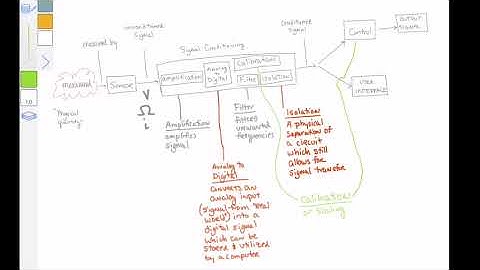 measured by
unconditioned
signal
Signal Conditioning
conditioned
signal
output
signal
Control
measurand
Sensor
amplification
Analog
to
Digital
Calibration
Filter
isolation
user
interface
"Physical
quantity"
V
Ω
i
Amplification
amplifies
signal
Filter
filters
unwanted
frequencies
Isolation
A physical
separation of
a circuit
which still
allows for
signal transfer
Analog to
Digital
converts an
analog input
(signal from "real
world") into a
digital signal
which can be
stored & utilized
by a computer
Calibration
or Scaling